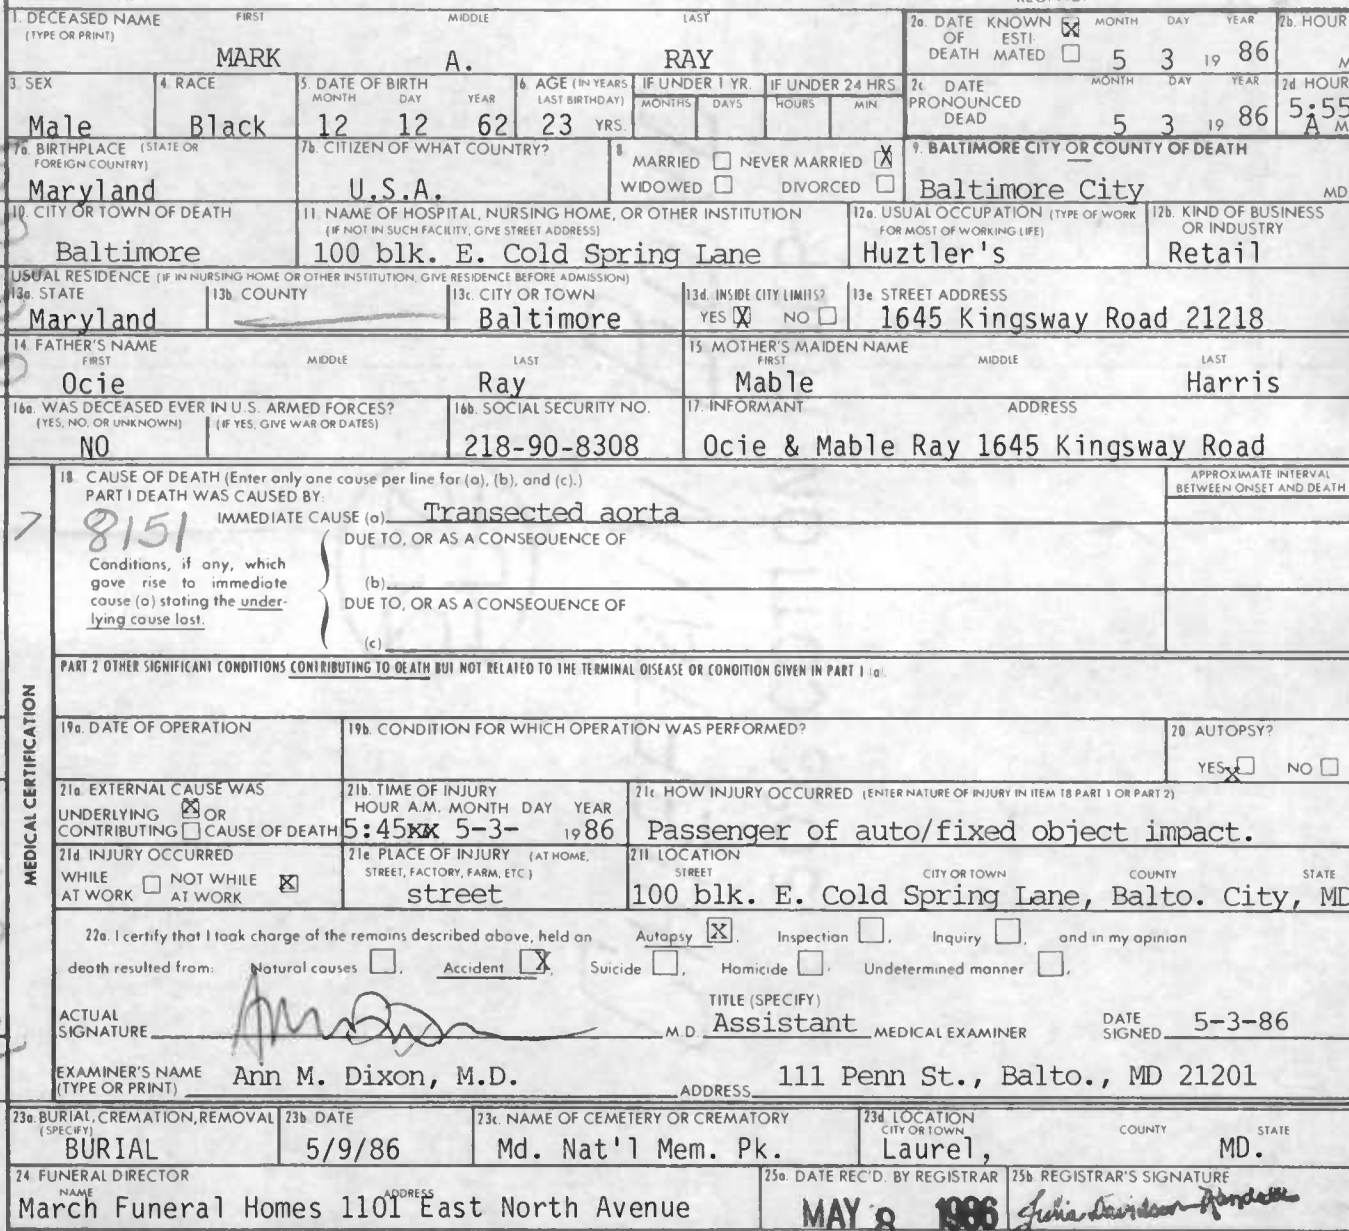 1. DECEASED NAME FIRST MIDDLE LAST
(TYPE OR PRINT)
MARK A. RAY
2a. DATE OF DEATH KNOWN ☒ ESTIMATED ☐ MONTH DAY YEAR
5 3 19 86
2b. HOUR
M
3. SEX
Male
4. RACE
Black
5. DATE OF BIRTH
MONTH DAY YEAR
12 12 62
6. AGE (IN YEARS LAST BIRTHDAY)
23 YRS.
IF UNDER 1 YR.
MONTHS DAYS
IF UNDER 24 HRS
HOURS MIN
2c. DATE PRONOUNCED DEAD
MONTH DAY YEAR
5 3 19 86
2d HOUR
5:55
A M
7a. BIRTHPLACE (STATE OR FOREIGN COUNTRY)
Maryland
7b. CITIZEN OF WHAT COUNTRY?
U.S.A.
8 MARRIED ☐ NEVER MARRIED ☒
WIDOWED ☐ DIVORCED ☐
9. BALTIMORE CITY OR COUNTY OF DEATH
Baltimore City MD
10. CITY OR TOWN OF DEATH
Baltimore
11. NAME OF HOSPITAL, NURSING HOME, OR OTHER INSTITUTION
(IF NOT IN SUCH FACILITY, GIVE STREET ADDRESS)
100 blk. E. Cold Spring Lane
12a. USUAL OCCUPATION (TYPE OF WORK FOR MOST OF WORKING LIFE)
Huztler's
12b. KIND OF BUSINESS OR INDUSTRY
Retail
USUAL RESIDENCE (IF IN NURSING HOME OR OTHER INSTITUTION, GIVE RESIDENCE BEFORE ADMISSION)
13a. STATE
Maryland
13b. COUNTY
13c. CITY OR TOWN
Baltimore
13d. INSIDE CITY LIMITS?
YES ☒ NO ☐
13e STREET ADDRESS
1645 Kingsway Road 21218
14. FATHER'S NAME
FIRST MIDDLE LAST
Ocie Ray
15 MOTHER'S MAIDEN NAME
FIRST MIDDLE LAST
Mable Harris
16a. WAS DECEASED EVER IN U.S. ARMED FORCES?
(YES, NO, OR UNKNOWN) (IF YES, GIVE WAR OR DATES)
NO
16b. SOCIAL SECURITY NO.
218-90-8308
17. INFORMANT ADDRESS
Ocie & Mable Ray 1645 Kingsway Road
18 CAUSE OF DEATH (Enter only one cause per line for (a), (b), and (c).)
PART I DEATH WAS CAUSED BY:
APPROXIMATE INTERVAL BETWEEN ONSET AND DEATH
7
8151
IMMEDIATE CAUSE (a) Transected aorta
DUE TO, OR AS A CONSEQUENCE OF
Conditions, if any, which gave rise to immediate cause (a) stating the underlying cause last.
(b)
DUE TO, OR AS A CONSEQUENCE OF
(c)
PART 2 OTHER SIGNIFICANT CONDITIONS CONTRIBUTING TO DEATH BUT NOT RELATED TO THE TERMINAL DISEASE OR CONDITION GIVEN IN PART 1 (a)
MEDICAL CERTIFICATION
19a. DATE OF OPERATION
19b. CONDITION FOR WHICH OPERATION WAS PERFORMED?
20 AUTOPSY?
YES ☒ NO ☐
21a. EXTERNAL CAUSE WAS
UNDERLYING ☒ OR
CONTRIBUTING ☐ CAUSE OF DEATH
21b. TIME OF INJURY
HOUR A.M. MONTH DAY YEAR
5:45xx 5-3- 1986
21c HOW INJURY OCCURRED (ENTER NATURE OF INJURY IN ITEM 18 PART 1 OR PART 2)
Passenger of auto/fixed object impact.
21d INJURY OCCURRED
WHILE AT WORK ☐ NOT WHILE AT WORK ☒
21e PLACE OF INJURY (AT HOME, STREET, FACTORY, FARM, ETC)
street
21f LOCATION
STREET CITY OR TOWN COUNTY STATE
100 blk. E. Cold Spring Lane, Balto. City, MD
22a. I certify that I took charge of the remains described above, held an Autopsy ☒, Inspection ☐, Inquiry ☐, and in my opinion
death resulted from: Natural causes ☐, Accident ☒, Suicide ☐, Homicide ☐, Undetermined manner ☐,
ACTUAL SIGNATURE M.D.
TITLE (SPECIFY)
Assistant MEDICAL EXAMINER
DATE SIGNED 5-3-86
EXAMINER'S NAME (TYPE OR PRINT) Ann M. Dixon, M.D.
ADDRESS 111 Penn St., Balto., MD 21201
23a. BURIAL, CREMATION, REMOVAL (SPECIFY)
BURIAL
23b. DATE
5/9/86
23c. NAME OF CEMETERY OR CREMATORY
Md. Nat'l Mem. Pk.
23d. LOCATION
CITY OR TOWN COUNTY STATE
Laurel, MD.
24 FUNERAL DIRECTOR
NAME ADDRESS
March Funeral Homes 1101 East North Avenue
25a. DATE REC'D. BY REGISTRAR
MAY 8 1986
25b REGISTRAR'S SIGNATURE
Julia Davidson-Randall